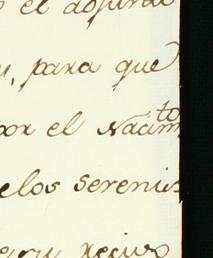 el adjunto
, para que
por el Nacim^to
elos serenis
recivo